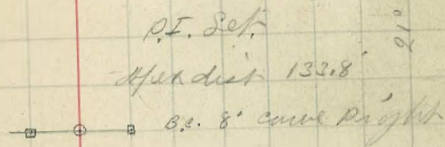 P.I. Set.
Apex dist 133.8'
B.C. 8° curve Right
21°